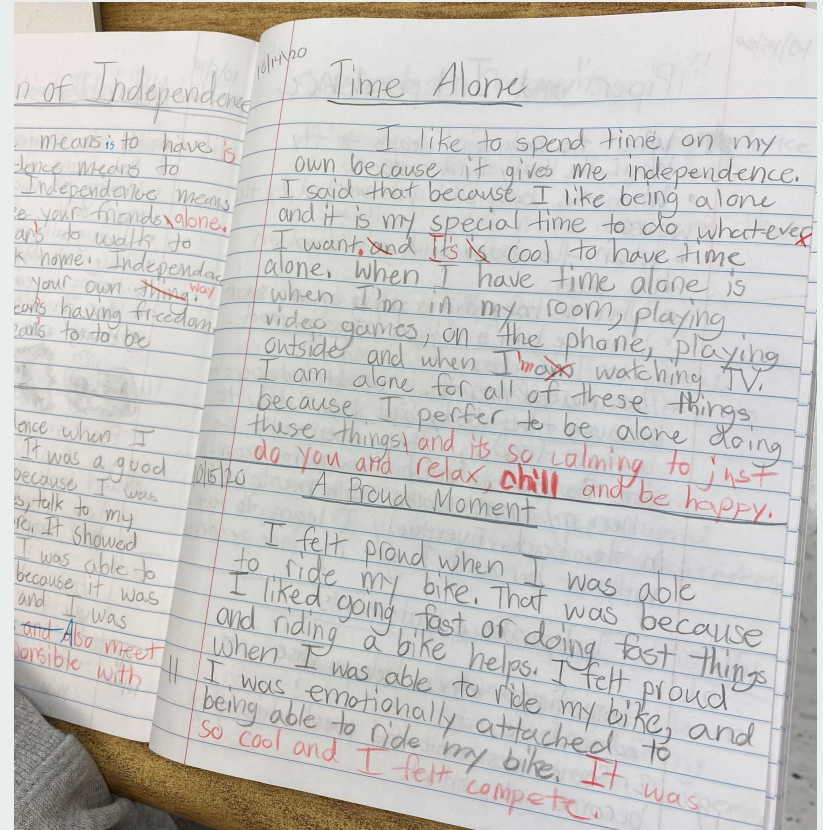 n of Independence
means is to have is
dence means to
Independence means
e your friends alone.
ans to walk to
k home. Independac
your own thing. way
eans having freedom
eans to to be
dence when I
It was a good
because I was
s, talk to my
re. It showed
I was able to
because it was
and I was
and Also meet
onsible with
10/14/20
Time Alone
I like to spend time on my
own because it gives me independence.
I said that because I like being alone
and it is my special time to do whatever
I want. and It's is cool to have time
alone. When I have time alone is
when I'm in my room, playing
video games, on the phone, playing
outside and when I'm watching TV.
I am alone for all of these things
because I perfer to be alone doing
these things, and its so calming to just
do you and relax, chill and be happy.
10/15/20
A Proud Moment
I felt proud when I was able
to ride my bike. That was because
I liked going fast or doing fast things
and riding a bike helps. I felt proud
when I was able to ride my bike, and
I was emotionally attached to
being able to ride my bike. It was
so cool and I felt compete.